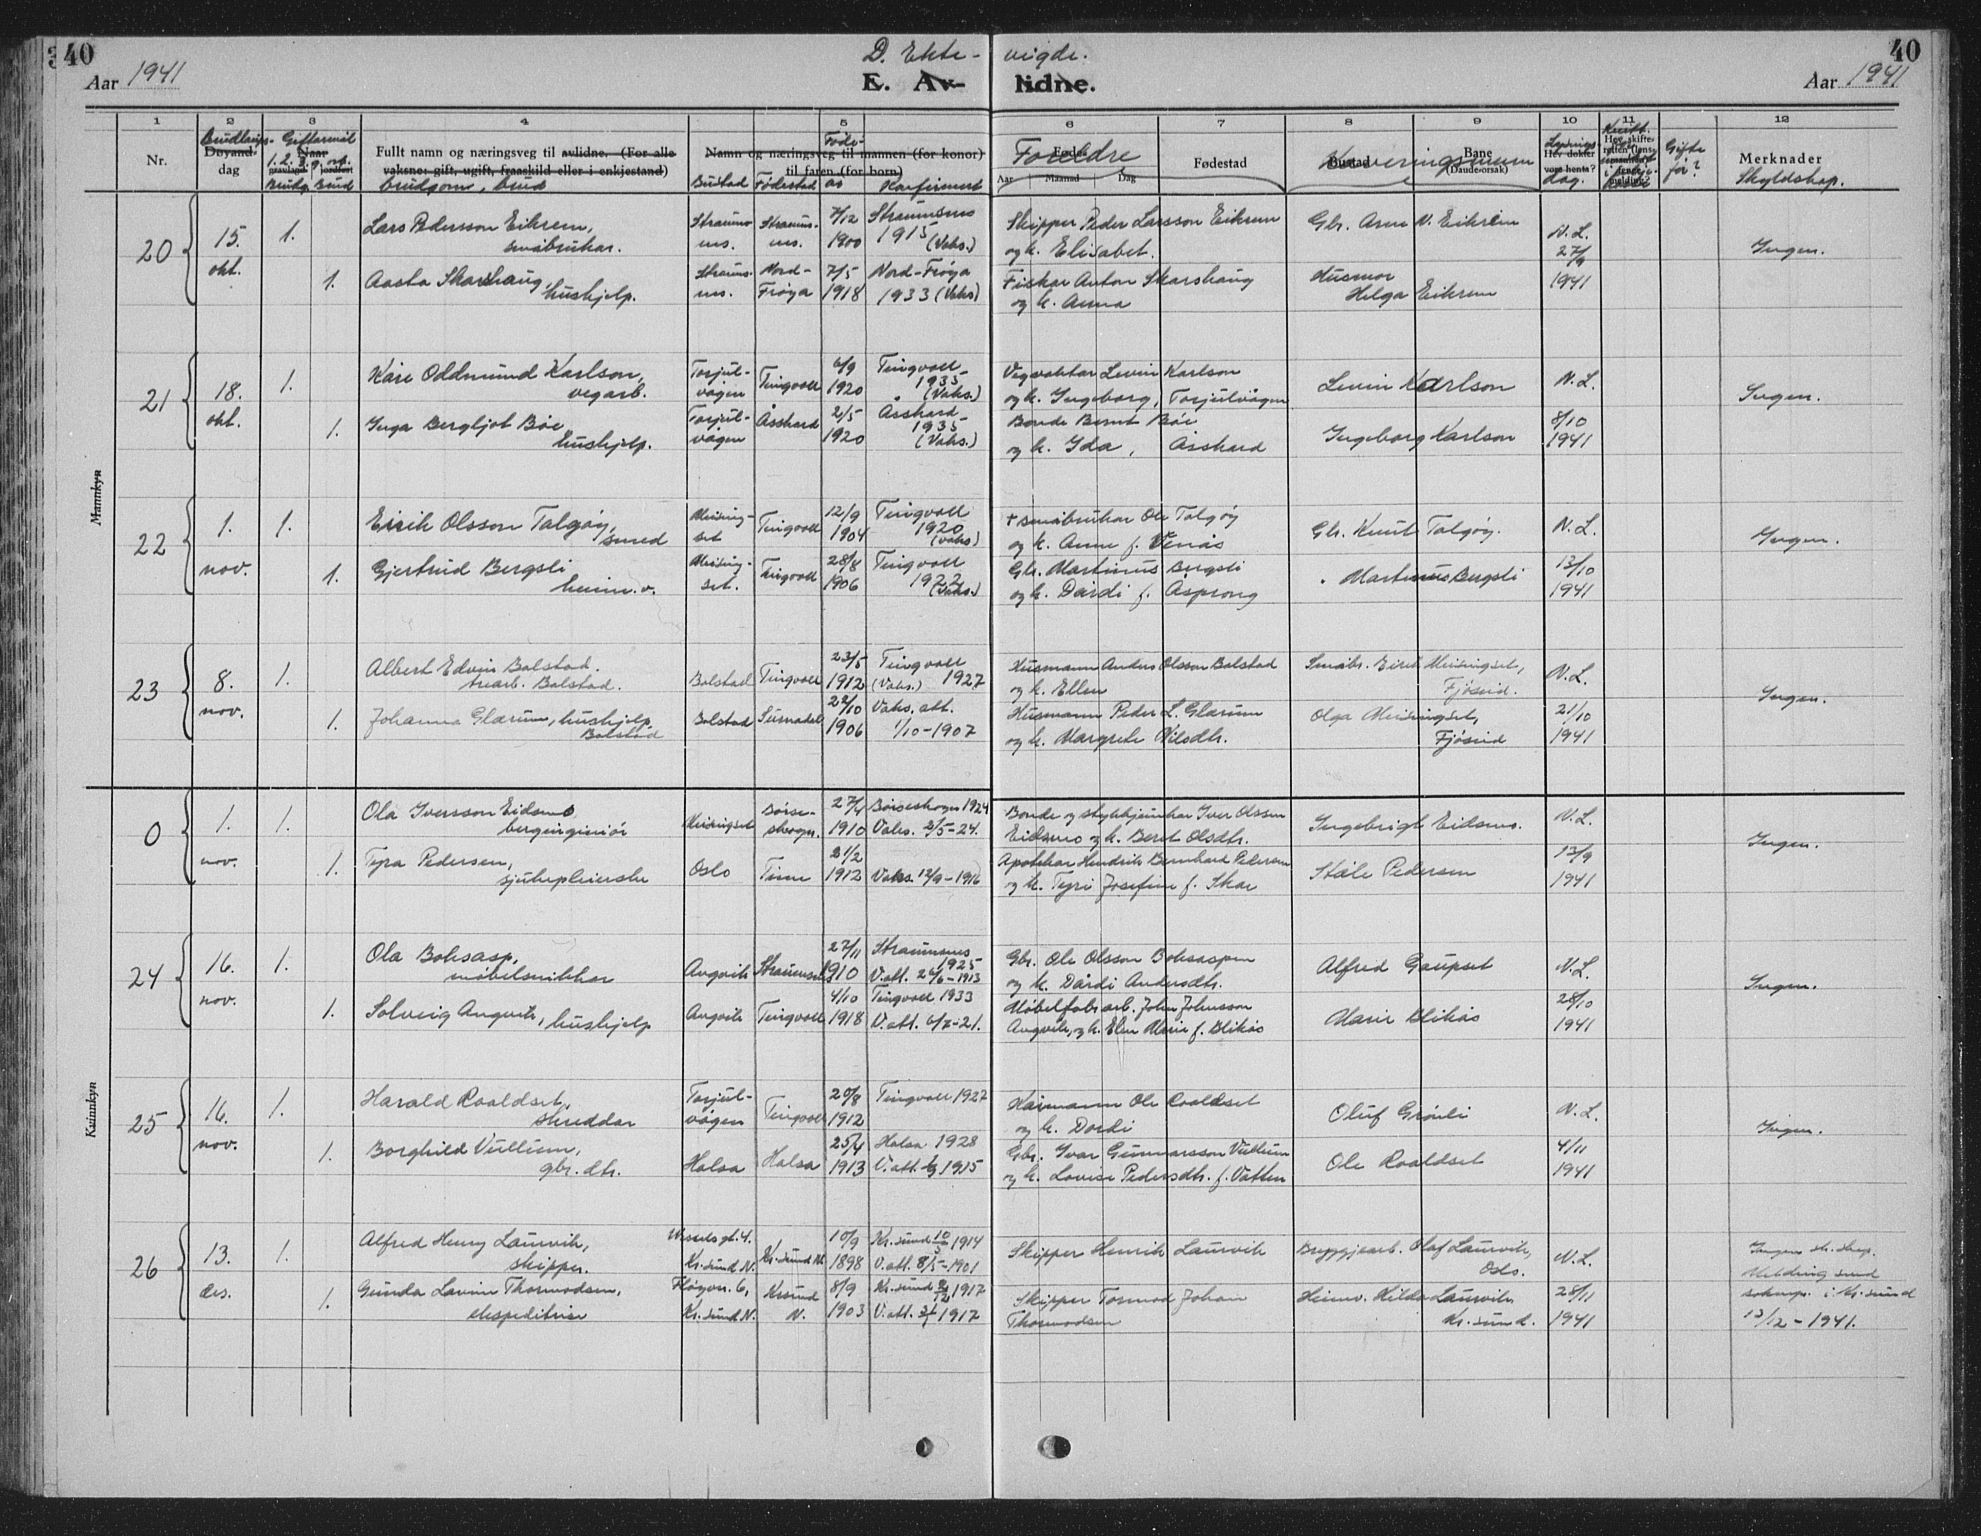 40
D. Ekte-
vigde.
40
Aar 1941
E. Av-
lidne.
Aar 1941
1 2 3 4 5 6 7 8 9 10 11 12
Nr.
Brudlaups-
Døyand-
dag
Giftarmål
Naar
Brudg. Brud
Fullt namn og næringsveg til avlidne. (For alle
vaksne: gift, ugift, fraaskild eller i enkjestand)
brudgom, brud
Namn og næringsveg til mannen (for konor)
til faren (for born)
Bustad Fødestad Føde-
år Konfirmert
Foreldre
Fødde
Aar Maanad Dag
Fødestad
Bustad
Bane
(Daudeorsak)
Lysings
Hev dokter
vore henta?
dag.
Gifte
før?
Merknader
Skyldskap.
Mannkyn
20
15.
okt.
1.
Lars Pedersson Eikrem,
småbrukar.
Straums-
nes.
Straums-
nes.
7/12
1900
Straumsnes
1915 (Vaks.)
Skipper Peder Larsson Eikrem
og k. Elisabet.
Gbr. Arne N. Eikrem
N. L.
27/9
1941
Ingen.
1.
Aasta Skarshaug,
hushjelp.
Straums-
nes.
Nord-
Frøya
7/5
1918
Nord-Frøya
1933 (Vaks)
Fiskar Anton Skarshaug
og k. Anna
Husmor
Helga Eikrem
21
18.
okt.
1.
Kåre Oddmund Karlson,
vegarb.
Torjul-
vågen
Tingvoll
6/9
1920
Tingvoll
1935
(Vaks.)
Vegvaktar Levin Karlson
og k. Ingeborg, Torjulvågen
Levin Karlson
N. L.
8/10
1941
Ingen.
1.
Inga Bergljot Bøe
hushjelp.
Torjul-
vågen
Åsskard
2/5
1920
Åsskard
1935
(Vaks.)
Bonde Bernt Bøe
og k. Ida, Åsskard
Ingeborg Karlson
22
1.
nov.
1.
Eirik Olsson Talgøy,
smed
Meising-
set
Tingvoll
12/9
1904
Tingvoll
1920
(vaks)
+ småbrukar Ole Talgøy
og k. Anne f. Venås
Gbr. Knut Talgøy.
N. L.
13/10
1941
Ingen.
1.
Gjertrud Bergsli
heim. v.
Meising-
set.
Tingvoll
28/8
1906
Tingvoll
1922
(Vaks.)
Gbr. Martinus Bergsli
og k. Dardi f. Asprong
" Martinus Bergsli
23
8.
nov.
1.
Albert Edvin Bolstad.
trearb. Bolstad.
Bolstad
Tingvoll
23/5
1912
Tingvoll
(Vaks.) 1927
Husmann Anders Olsson Bolstad
og k. Ellen
Småbr. Eirik Meisingset,
Fjøseid.
N. L.
21/10
1941
Ingen.
1.
Johanna Glærum, hushjelp.
Bolstad
Bolstad
Surnadal
22/10
1906
Vaks. att.
1/10-1907
Husmann Peder L. Glærum
og k. Margrete Nilsdtr.
Olga Meisingset,
Fjøseid
0
1.
nov.
1.
Ola Iversson Eidsmo
bergingeniør
Meisingset
Børse-
skogn.
27/4
1910
Børseskogn 1924
Vaks. 2/5-24.
Bonde og Iver Olsson
Eidsmo og k. Beret Olsdtr.
Ingebrigt Eidsmo.
N. L.
13/9
1941
Ingen.
1.
Tyra Pedersen,
sjukepleierske
Oslo
Time
21/2
1912
Vaks. 12/9-1916
Apotekar Hendrik Bernhard Pedersen
og k. Tyri Josefine f. Skar
Ståle Pedersen
24
16.
nov.
1.
Ola Boksasp,
møbelsnikkar
Angvik
Straumsnes
27/11
1910
Straumsnes
1925
V.att. 26/6-1913
Gbr. Ole Olsson Boksaspen
og k. Dårdi Andersdtr.
Alfred Gaupset
N. L.
28/10
1941
Ingen.
1.
Solveig Angvik, hushjelp
Angvik
Tingvoll
4/10
1918
Tingvoll 1933
V. att. 6/7-21.
Møbelfabr.arb. John Johnsson
Angvik, og k. Elen Marie f. Blikås
Marie Blikås
Kvinnkyn
25
16.
nov.
1.
Harald Roaldset,
skreddar
Torjul-
vågen
Tingvoll
20/8
1912
Tingvoll 1927
Kårmann Ole Roaldset
og k. Dordi
Oluf Grønli
N. L.
4/11
1941
Ingen.
1.
Borghild Vullum,
gbr. dtr.
Halsa
Halsa
25/4
1913
Halsa 1928
V. att. 1915
Gbr. Ivar Gunnarsson Vullum
og k. Lovise Pedersdtr. f. Vatten
Ole Roaldset
26
13.
des.
1.
Alfred Henry Laurvik,
skipper.
Wesselsgt. 4.
Kr.sund N.
Kr.sund N.
10/9
1898
Kr.sund 10/5 1914
V. att. 8/5-1901
Skipper Henrik Laurvik
Bryggjearb. Olaf Laurvik,
Oslo.
N. L.
28/11
1941
Ingen sk.skap.
Melding send
soknep. i Kr.sund
13/12-1941.
1.
Gunda Lavine Thormodsen,
ekspeditrise
Fløyvn. 6,
Kr.sund N.
Krsund
N.
8/9
1903
Kr.sund 1917
V. att. 1917
Skipper Tormod Johan
Thormodsen
Heimv. Hilda Laurvik
Kr.sund.